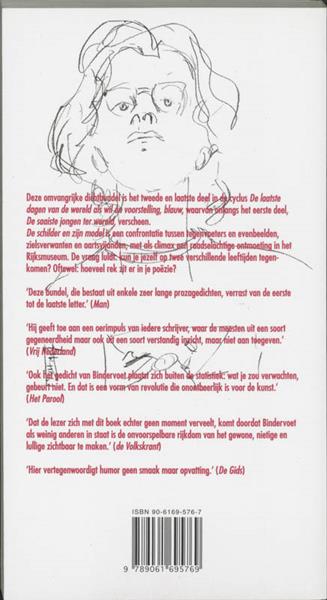 Deze omvangrijke dichtbundel is het tweede en laatste deel in de cyclus De laatste
dagen van de wereld als wil en voorstelling, blauw, waarvan onlangs het eerste deel,
De saaiste jongen ter wereld, verscheen.
De schilder en zijn model is een confrontatie tussen tegenvoeters en evenbeelden,
zielsverwanten en aartsvijanden, met als climax een raadselachtige ontmoeting in het
Rijksmuseum. De vraag luidt: kun je jezelf op twee verschillende leeftijden tegen-
komen? Oftewel: hoeveel rek zit er in je poëzie?
'Deze bundel, die bestaat uit enkele zeer lange prozagedichten, verrast van de eerste
tot de laatste letter.' (Man)
'Hij geeft toe aan een oerimpuls van iedere schrijver, waar de meesten uit een soort
gegeneerdheid maar ook uit een soort verstandig inzicht, maar niet aan toegeven.'
(Vrij Nederland)
'Ook het gedicht van Bindervoet plaatst zich buiten de statistiek: wat je zou verwachten,
gebeurt niet. En dat is een vorm van revolutie die onontbeerlijk is voor de kunst.'
(Het Parool)
'Dat de lezer zich met dit boek echter geen moment verveelt, komt doordat Bindervoet
als weinig anderen in staat is de onvoorspelbare rijkdom van het gewone, nietige en
lullige zichtbaar te maken.' (de Volkskrant)
'Hier vertegenwoordigt humor geen smaak maar opvatting.' (De Gids)
ISBN 90-6169-576-7
9 789061 695769